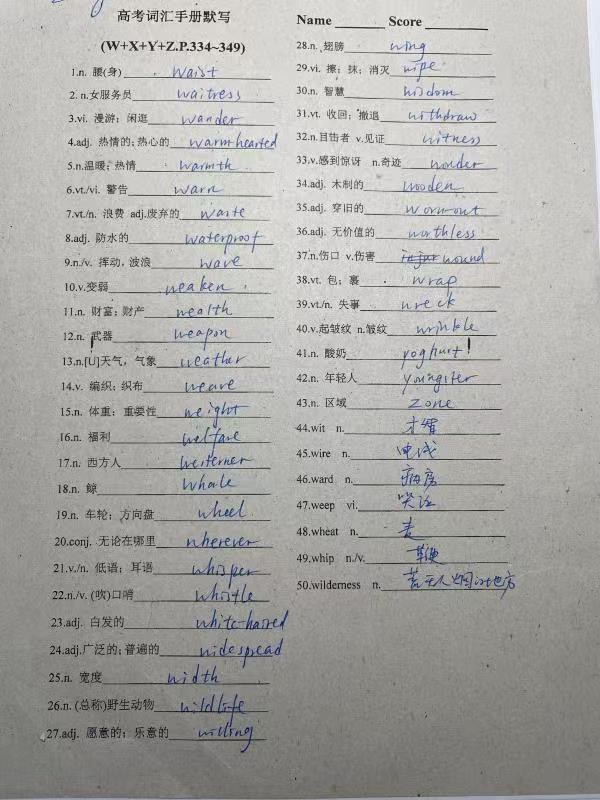 高考词汇手册默写
(W+X+Y+Z.P.334~349)
1.n. 腰(身) waist
2. n.女服务员 waitress
3.vi. 漫游; 闲逛 wander
4.adj. 热情的; 热心的 warm-hearted
5.n.温暖; 热情 warmth
6.vt./vi. 警告 warn
7.vt./n. 浪费 adj.废弃的 waste
8.adj. 防水的 waterproof
9.n./v. 挥动,波浪 wave
10.v.变弱 weaken
11.n. 财富; 财产 wealth
12.n. 武器 weapon
13.n.[U]天气, 气象 weather
14.v. 编织; 织布 weave
15.n. 体重; 重要性 weight
16.n. 福利 welfare
17.n. 西方人 westerner
18.n. 鲸 whale
19.n. 车轮; 方向盘 wheel
20.conj. 无论在哪里 wherever
21.v./n. 低语; 耳语 whisper
22.n./v. (吹)口哨 whistle
23.adj. 白发的 white-haired
24.adj.广泛的; 普遍的 widespread
25.n. 宽度 width
26.n. (总称)野生动物 wildlife
27.adj. 愿意的; 乐意的 willing
Name Score
28.n. 翅膀 wing
29.vi. 擦; 抹; 消灭 wipe
30.n. 智慧 wisdom
31.vt. 收回; 撤退 withdraw
32.n.目击者 v.见证 witness
33.v.感到惊讶 n.奇迹 wonder
34.adj. 木制的 wooden
35.adj. 穿旧的 worn-out
36.adj. 无价值的 worthless
37.n.伤口 v.伤害 wound
38.vt. 包; 裹 wrap
39.vt./n. 失事 wreck
40.v.起皱纹 n.皱纹 wrinkle
41.n. 酸奶 yoghurt!
42.n. 年轻人 youngster
43.n. 区域 zone
44.wit n. 才智
45.wire n. 电线
46.ward n. 病房
47.weep vi. 哭泣
48.wheat n. 麦
49.whip n./v. 鞭
50.wilderness n. 荒无人烟的地方